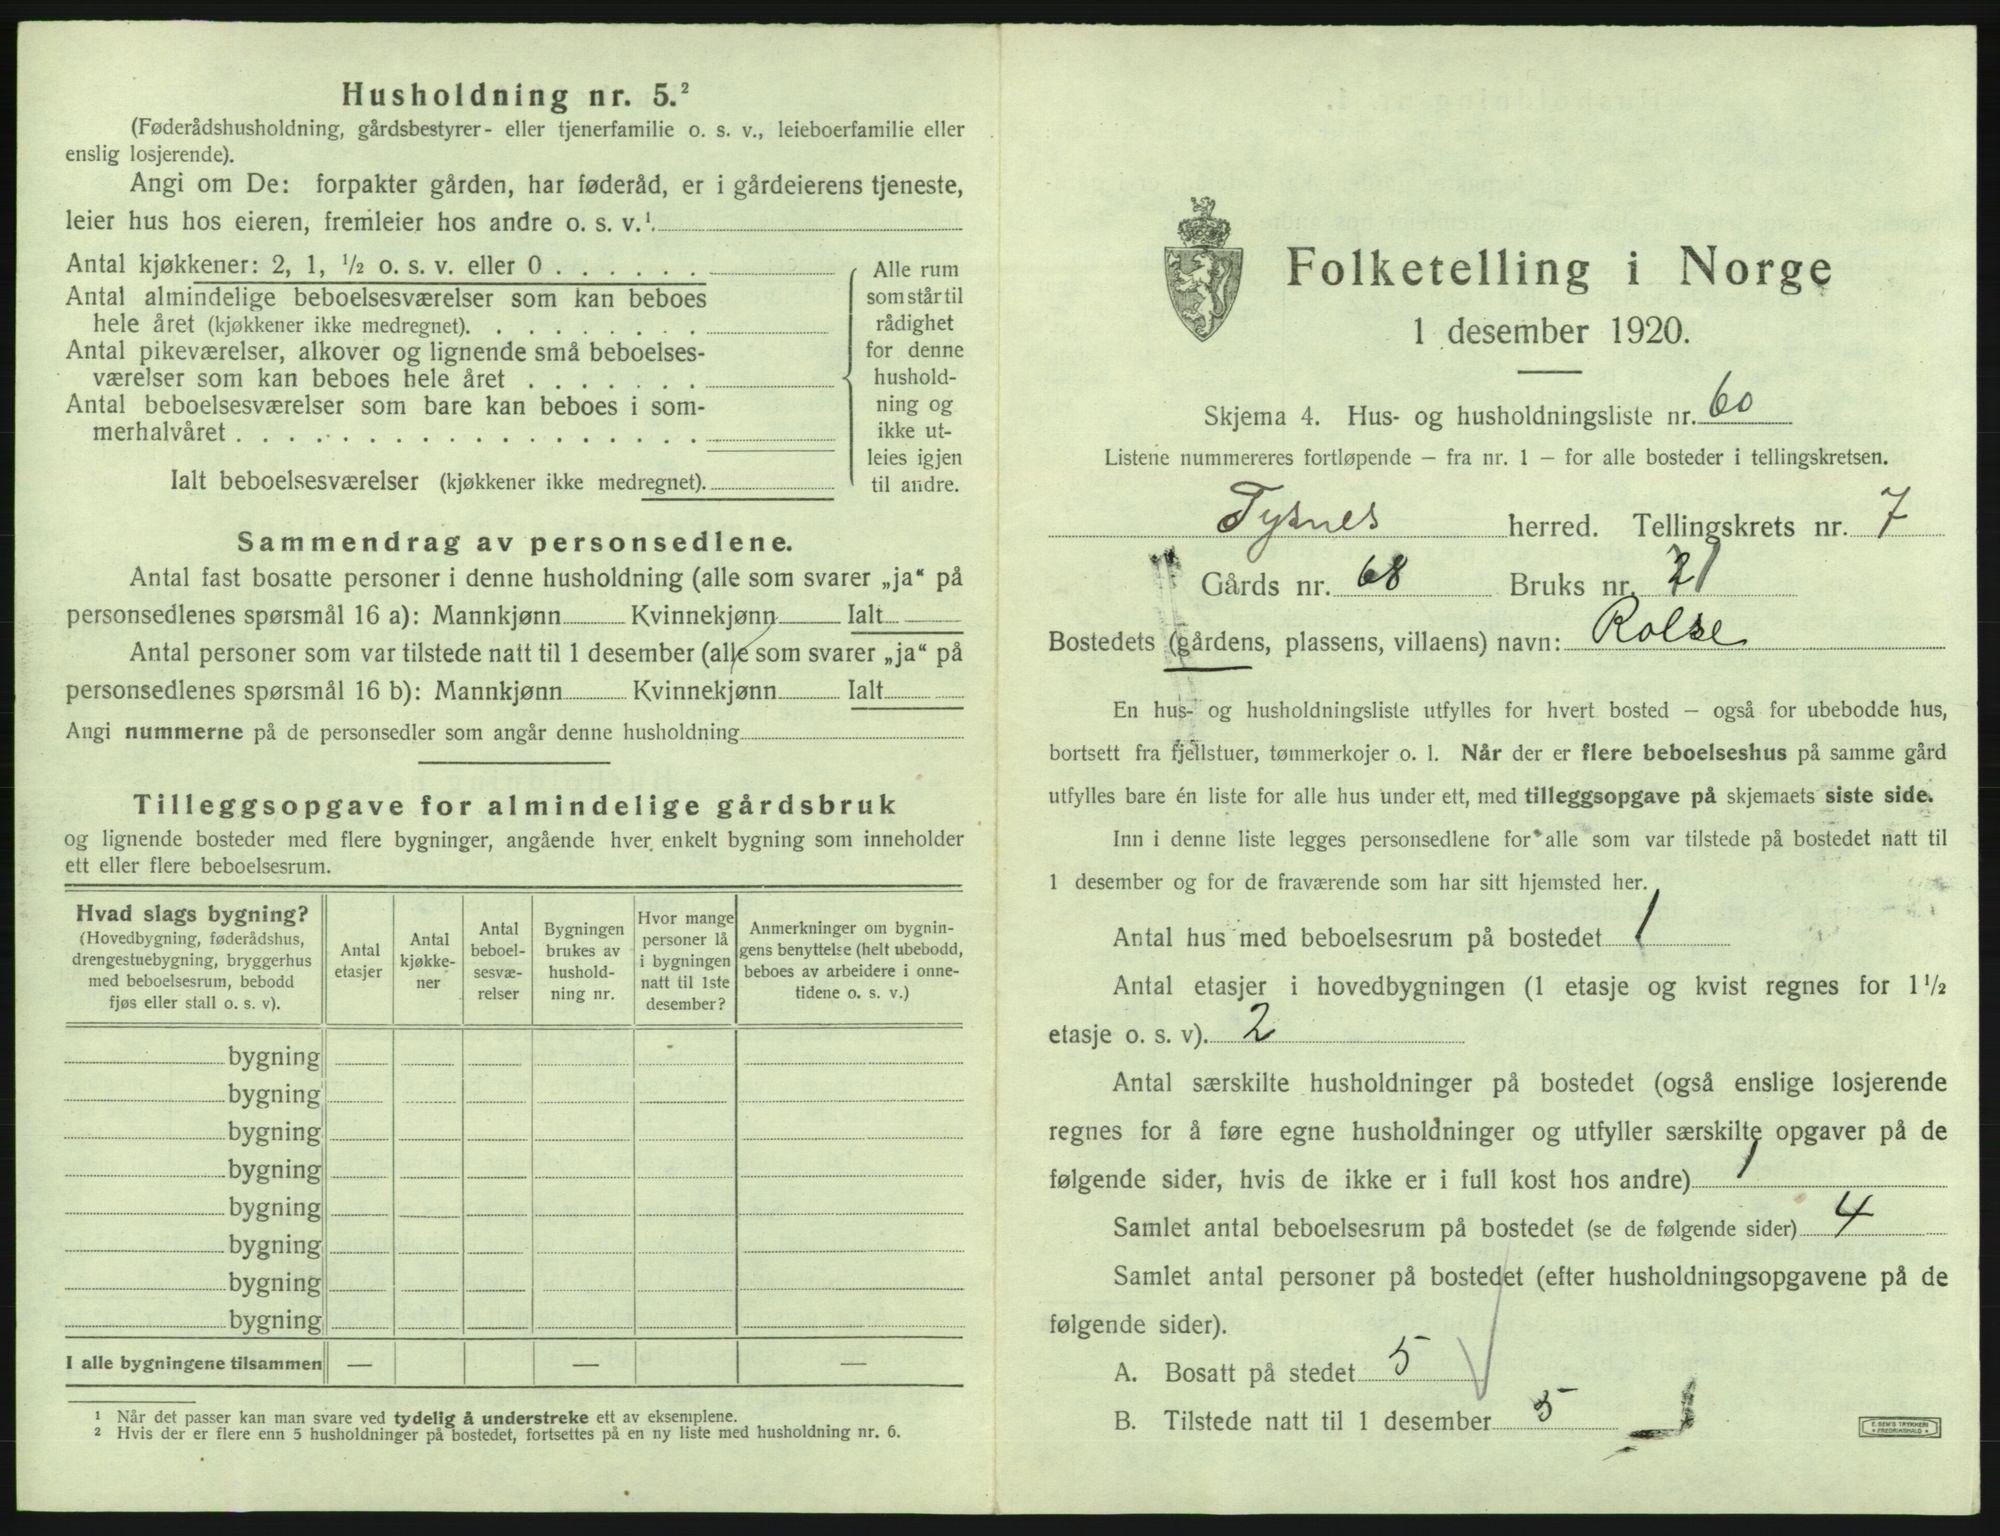 Husholdning nr. 5.²
(Føderådshusholdning, gårdsbestyrer- eller tjenerfamilie o. s. v., leieboerfamilie eller
enslig losjerende).
Angi om De: forpakter gården, har føderåd, er i gårdeierens tjeneste,
leier hus hos eieren, fremleier hos andre o. s. v.¹.
Antal kjøkkener: 2, 1, ½ o. s. v. eller 0 . . . . . .
Antal almindelige beboelsesværelser som kan beboes
hele året (kjøkkener ikke medregnet). . . . . . . . .
Antal pikeværelser, alkover og lignende små beboelses-
værelser som kan beboes hele året . . . . . . .
Antal beboelsesværelser som bare kan beboes i som-
merhalvåret . . . . . . . . . . . . . . . . . .
Ialt beboelsesværelser (kjøkkener ikke medregnet).
Alle rum
som står til
rådighet
for denne
hushold-
ning og
ikke ut-
leies igjen
til andre.
Sammendrag av personsedlene.
Antal fast bosatte personer i denne husholdning (alle som svarer „ja“ på
personsedlenes spørsmål 16 a): Mannkjønn Kvinnekjønn Ialt
Antal personer som var tilstede natt til 1 desember (alle som svarer „ja“ på
personsedlenes spørsmål 16 b): Mannkjønn Kvinnekjønn Ialt
Angi nummerne på de personsedler som angår denne husholdning
Tilleggsopgave for almindelige gårdsbruk
og lignende bosteder med flere bygninger, angående hver enkelt bygning som inneholder
ett eller flere beboelsesrum.
Hvad slags bygning?
(Hovedbygning, føderådshus,
drengestuebygning, bryggerhus
med beboelsesrum, bebodd
fjøs eller stall o. s. v).
Antal
etasjer
Antal
kjøkke-
ner
Antal
beboel-
sesvæ-
relser
Bygningen
brukes av
hushold-
ning nr.
Hvor mange
personer lå
i bygningen
natt til 1ste
desember?
Anmerkninger om bygnin-
gens benyttelse (helt ubebodd,
beboes av arbeidere i onne-
tidene o. s. v.)
bygning
bygning
bygning
bygning
bygning
bygning
bygning
bygning
I alle bygningene tilsammen — — —
¹ Når det passer kan man svare ved tydelig å understreke ett av eksemplene.
² Hvis der er flere enn 5 husholdninger på bostedet, fortsettes på en ny liste med husholdning nr. 6.
Folketelling i Norge
1 desember 1920.
Skjema 4. Hus- og husholdningsliste nr. 60
Listene nummereres fortløpende – fra nr. 1 – for alle bosteder i tellingskretsen.
Tysnes herred. Tellingskrets nr. 7
Gårds nr. 68 Bruks nr. 21
Bostedets (gårdens, plassens, villaens) navn: Rolse
En hus- og husholdningsliste utfylles for hvert bosted – også for ubebodde hus,
bortsett fra fjellstuer, tømmerkojer o. l. Når der er flere beboelseshus på samme gård
utfylles bare én liste for alle hus under ett, med tilleggsopgave på skjemaets siste side.
Inn i denne liste legges personsedlene for alle som var tilstede på bostedet natt til
1 desember og for de fraværende som har sitt hjemsted her.
Antal hus med beboelsesrum på bostedet 1
Antal etasjer i hovedbygningen (1 etasje og kvist regnes for 1½
etasje o. s. v). 2
Antal særskilte husholdninger på bostedet (også enslige losjerende
regnes for å føre egne husholdninger og utfyller særskilte opgaver på de
følgende sider, hvis de ikke er i full kost hos andre) 1
Samlet antal beboelsesrum på bostedet (se de følgende sider) 4
Samlet antal personer på bostedet (efter husholdningsopgavene på de
følgende sider).
A. Bosatt på stedet 5
B. Tilstede natt til 1 desember 5
E. SEM'S TRYKKERI
FREDRIKSHALD